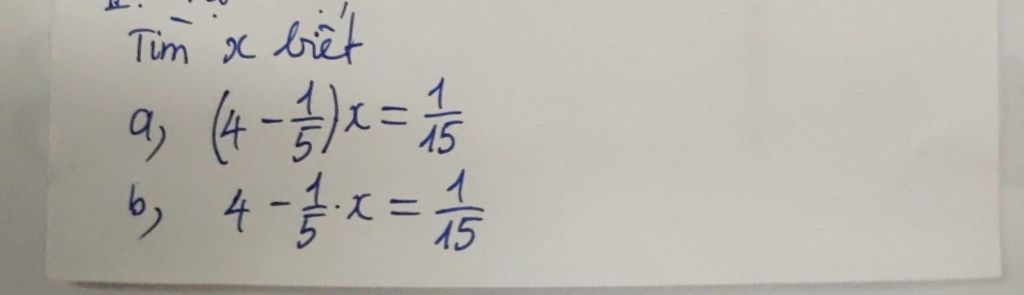 Tìm x biết
a, (4 - 1/5)x = 1/15
b, 4 - 1/5 . x = 1/15